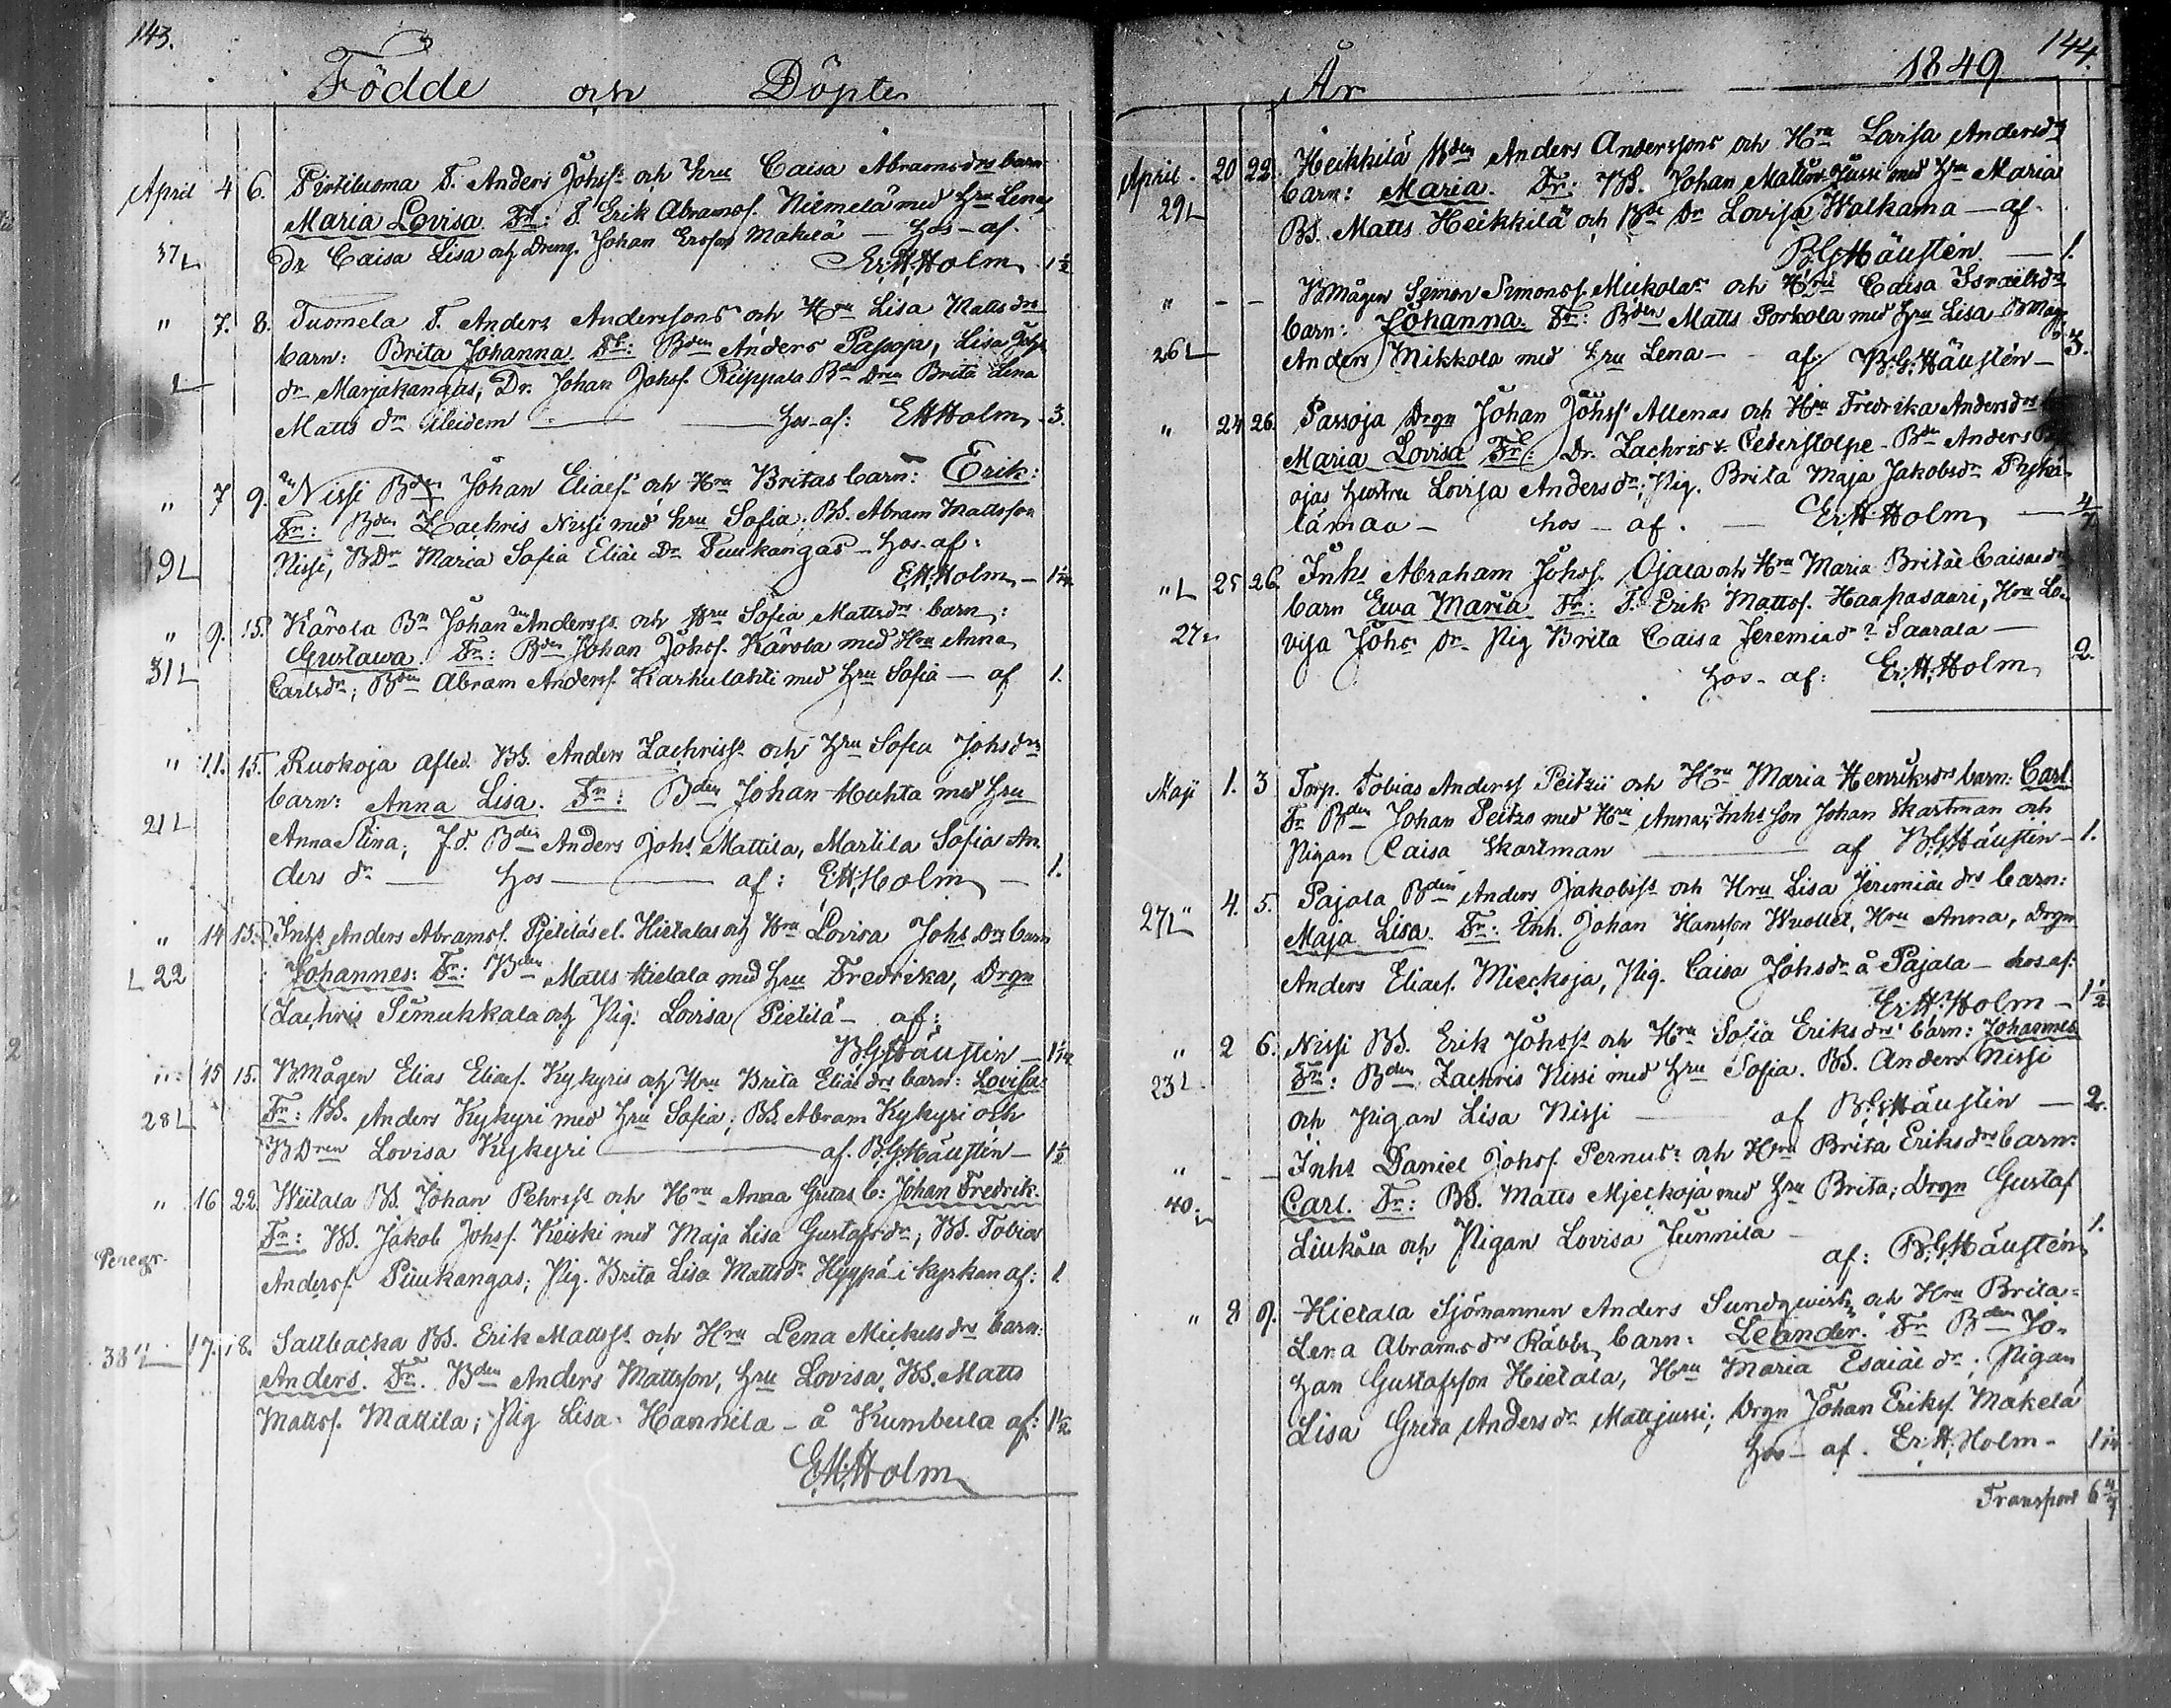 143.
Födde och Döpte
April 4 6. Pirtiluoma T. Anders Johss. och Hru Caisa Abramsdrs barn
Maria Lovisa. Fr: T. Erik Abramsf. Niemelä med Hru Lena,
37 L Dr Caisa Lisa och Dreng. Johan Ersson Mäkelä — Hos - af.
Er. H. Holm 1½
" 7. 8. Tuomela T. Anders Anderssons och Hru Lisa Matts drs
barn: Brita Johanna. Fr: Bden Anders Passoja, Lisa Johs
L dr Marjakangas, Dr. Johan Johsf. Riippala Bde Dren Brita Lena
Matts dr — Hos - af: EHHolm 3.
" 7 9. Nissi Bden Johan Eliaes. och Hru Britas barn: Erik:
Fr: Bden Zachris Nissi med Hru Sofia. BS. Abram Mattsson
39 L Nissi, BDr Maria Sofia Eliæ Dr Puukangas - Hos - af:
E.H. Holm - 1½
" 9. 15. Kärola Bn Johan Anderss. och Hru Sofia Mattsdrs barn:
Gustawa. Fr: Bden Johan Johsf. Kärola med Hru Anna
31 L Carlsdr; Bden Abram Andersf. Karhulahti med Hru Sofia — af 1.
" 11. 15. Ruokoja afled. BS. Anders Zachriss. och Hru Sofia Johsdrs
barn: Anna Lisa. Fr: Bden Johan Huhta med Hru
21 L Anna Stina; f.d. Bden Anders Johs. Mattila, Marlila Sofia An
ders dr — Hos — af: E.H. Holm — 1.
" 14 15. Inhs. Anders Abramsf. Pjetiläs el. Hietalas och Hru Lovisa Johs Drs barn
L 22 Johannes: Fr: Bden Matts Hietala med Hru Fredrika, Drgn
Zachris Simukkala och Pig: Lovisa Pietilä - af:
B.G. Häustén — 1½
" 15 15. BMågen Elias Eliaes. Kykyris och Hru Brita Eliæ drs barn: Lovisa:
28 L Fr: BS. Anders Kykyri med Hru Sofia; BS. Abram Kykyri och
BDren Lovisa Kykyri — af. B.G. Häustén - 1½
" 16 22. Wiitala BS. Johan Pehrss. och Hru Anna Gretas b: Johan Fredrik.
Fr: BS. Jakob Johsf. Keiski med Maja Lisa Gustafsdr; BS. Tobias
Peregr. Andersf. Puukangas; Pig. Brita Lisa Mattsdr Hyypä - i kyrkan af: 1
38 L 17. 18. Sallbacka BS. Erik Mattss. och Hru Lena Mickels drs barn:
Anders. Fr. Bden Anders Mattsson, Hru Lovisa, BS. Matts
Mattsf. Mattila; Pig Lisa Hannila - å Kumbula af: 1½
E.H. Holm
År 1849 144.
April. 20 22. Heikkilä Bden Anders Anderssons och Hru Lovisa Andersdrs
29 L barn: Maria. Fr: BS. Johan Jussi med Hru Maria
BS. Matts Heikkilä och Bde Dr Lovisa Walkama — af
B.G. Häustén. — 1.
" - - BMågen Simon Simonsf. Mickolas och Hru Caisa Israelsdrs
barn: Johanna. Fr: Bden Matts Porkola med Hru Lisa BMåg
26 L Anders Mikkola med Hru Lena - af B.G. Häustén — 3.
" 24 26. Passoja Drgn Johan Johss. Allenas och Hru Fredrika Andersdrs
Maria Lovisa Fr: Dr. Zachris Cederstolpe - Bde Anders
ojas hustru Lovisa Andersdr; Pig. Brita Maja Jakobsdr
lämaa - hos - af. — Er. H. Holm — 4/7
" L 25 26 Inhs Abraham Johsf. Ojala och Hru Maria Brita Caisæ dr
barn Ewa Maria Fr: T. Erik Mattsf. Haapasaari, Hru Lo-
27 visa Johs dr Pig Brita Caisa Jeremiæ dr Saarala —
Hos - af: Er. H. Holm 2.
Maji 1. 3 Torp. Tobias Andersf Peitzii och Hru Maria Henriksdrs barn: Carl
Fr Bden Johan Peitzo med Hru Anna; Inhs son Johan Skartman och
Pigan Caisa Skartman — af B.G. Häustén - 1.
27 L " 4. 5. Pajala Bden Anders Jakobss. och Hru Lisa Jeremiæ drs barn:
Maja Lisa. Fr: Enh. Johan Hansson Wuollet, Hru Anna, Drgn
Anders Eliaes. Mieckoja, Pig. Caisa Johsdr å Pajala - hos af:
Er. H. Holm — 1½
" 2 6. Nissi BS. Erik Johss. och Hru Sofia Eriks drs barn: Johannes
23 L Fr: Bden Zachris Nissi med Hru Sofia. BS. Anders Nissi
och Pigan Lisa Nissi — af B.G. Häustén — 2.
" - - Inhs Daniel Johsf. Pernus: och Hru Brita Eriksdrs barn:
40. L Carl. Fr: BS. Matts Mjeckoja med Hru Brita; Drgn Gustaf
Liukala och Pigan Lovisa Junnila - 1.
af: B.G. Häustén
" 8 9. Hietala Sjömannen Anders Sundqvists och Hru Brita-
Lena Abrams drs Räbbs barn: Leander. Fr Bden Jo-
han Gustafsson Hietala, Hru Maria Esaiæ dr; Pigan
Lisa Greta Anders dr Mattjussi; Drgn Johan Eriksf. Mäkelä
Hos - af. Er. H. Holm - 1½
Transport 6 4/7